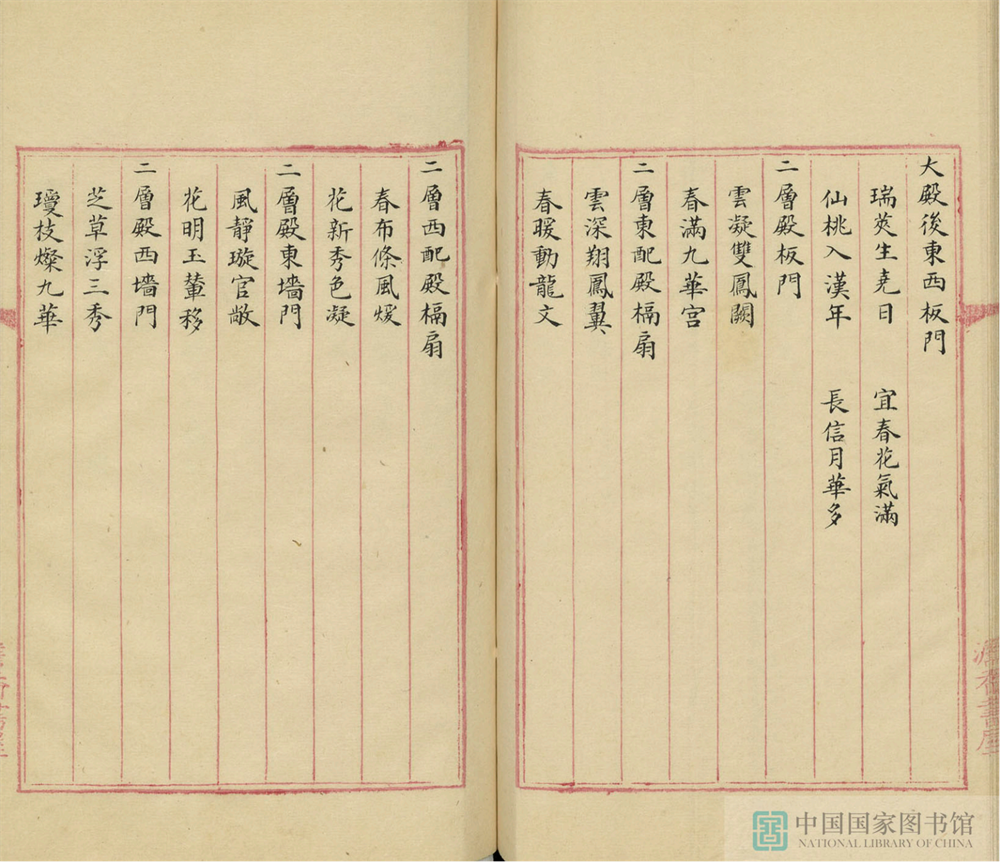 大殿後東西板門
瑞莢生堯日 宜春花氣滿
仙桃入漢年 長信月華多
二層殿板門
雲凝雙鳳闕
春滿九華宮
二層東配殿槅扇
雲深翔鳳翼
春暖動龍文
二層西配殿槅扇
春布條風煖
花新秀色凝
二層殿東墻門
風靜璇官敞
花明玉輦移
二層殿西墻門
芝草浮三秀
瓊枝燦九華
書屋
中国国家图书馆
NATIONAL LIBRARY OF CHINA